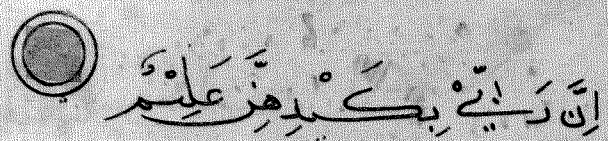 اِنَّ رَبِّيْ بِكَيْدِهِنَّ عَلِيْمٌ